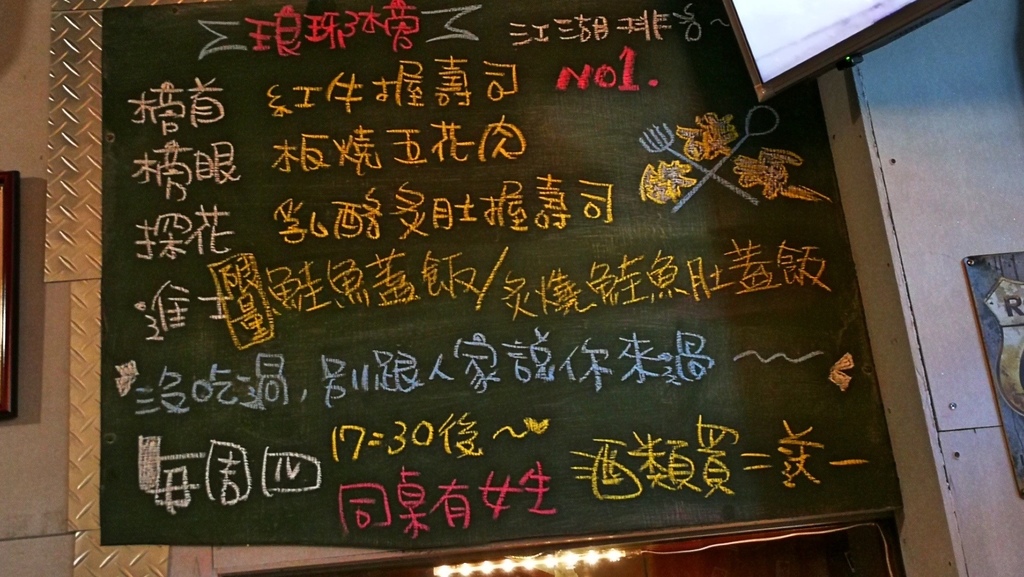 琅琊榜 江湖排名~
NO1.
榜首 紅牛握壽司
榜眼 板燒五花肉
探花 乳酪炙肚握壽司
進士 限量 鮭魚蓋飯/炙燒鮭魚肚蓋飯
沒吃過,別跟人家說你來過~~
每周四 17:30後~
同桌有女生 酒類買二送一
R